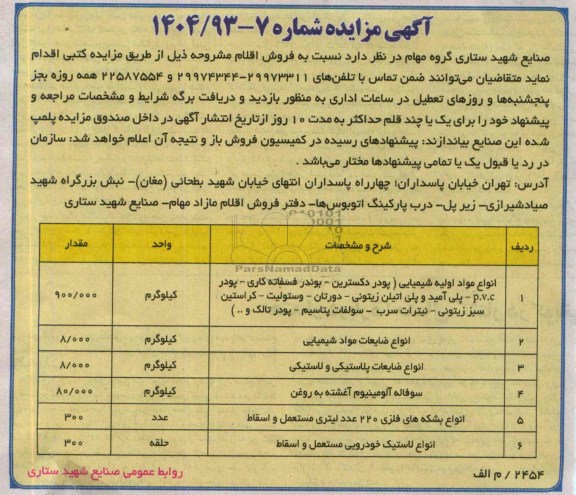 آگهی مزایده شماره ۷-۱۴۰۴/۹۳
صنایع شهید ستاری گروه مهام در نظر دارد نسبت به فروش اقلام مشروحه ذیل از طریق مزایده کتبی اقدام
نماید متقاضیان می‌توانند ضمن تماس با تلفن‌های ۲۹۹۷۳۳۱۱-۲۹۹۷۴۳۴۴ و ۲۲۵۸۷۵۵۴ همه روزه بجز
پنجشنبه‌ها و روزهای تعطیل در ساعات اداری به منظور بازدید و دریافت برگه شرایط و مشخصات مراجعه و
پیشنهاد خود را برای یک یا چند قلم حداکثر به مدت ۱۰ روز ازتاریخ انتشار آگهی در داخل صندوق مزایده پلمپ
شده این صنایع بیاندازند: پیشنهادهای رسیده در کمیسیون فروش باز و نتیجه آن اعلام خواهد شد: سازمان
در رد یا قبول یک یا تمامی پیشنهادها مختار می‌باشد .
آدرس: تهران خیابان پاسداران: چهارراه پاسداران انتهای خیابان شهید بطحانی (مغان)- نبش بزرگراه شهید
صیادشیرازی- زیر پل- درب پارکینگ اتوبوس‌ها- دفتر فروش اقلام مازاد مهام- صنایع شهید ستاری
ردیف شرح و مشخصات واحد مقدار
ParsNamadData
۱ انواع مواد اولیه شیمیایی ( پودر دکسترین - بوندر فسفاته کاری - پودر
p.v.c - پلی آمید و پلی اتیلن زیتونی - دورتان - وستولیت - کراستین
سبز زیتونی - نیترات سرب - سولفات پتاسیم - پودر تالک و .. ) کیلوگرم ۹۰۰/۰۰۰
۲ انواع ضایعات مواد شیمیایی کیلوگرم ۸/۰۰۰
۳ انواع ضایعات پلاستیکی و لاستیکی کیلوگرم ۸/۰۰۰
۴ سوفاله آلومینیوم آغشته به روغن کیلوگرم ۸۰/۰۰۰
۵ انواع بشکه های فلزی ۲۲۰ عدد لیتری مستعمل و اسقاط عدد ۳۰۰
۶ انواع لاستیک خودرویی مستعمل و اسقاط حلقه ۳۰۰
۲۴۵۴ / م الف روابط عمومی صنایع شهید ستاری